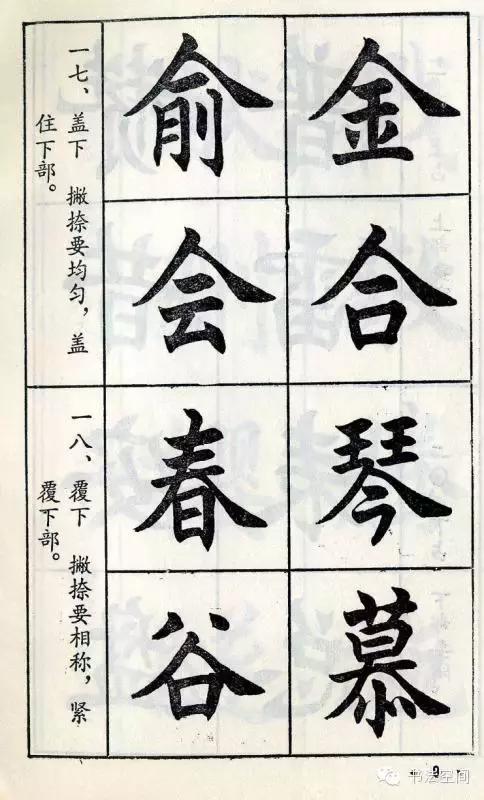 金合
俞会
一七、盖下 撇捺要均匀，盖
住下部。
琴慕
春谷
一八、覆下 撇捺要相称，紧
覆下部。
· 9 ·
书法空间